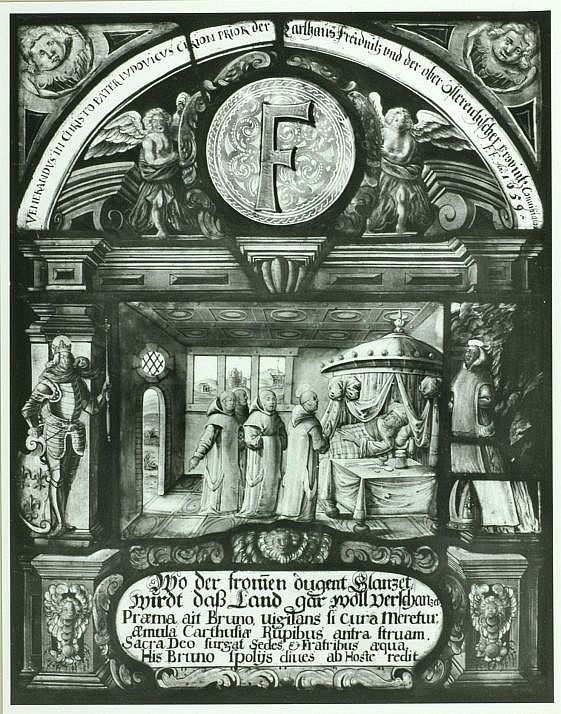 VENERANDVS IN CHRISTO PATER LVDOVICVS CIRION PRIOR der Carthaus Freidnitz vnd der ober Österreichischer provintz
1659
F
Wo der from̄en dugent Glanzet,
wirdt daß Land gar woll verschanzet
Præmia ait Bruno, vigilans si cura Meretur,
æmula Carthusiæ Rupibus antra struam.
Sacra Deo surgat Sedes, & Fratribus æqua,
His Bruno spolijs diues ab Hoste redit